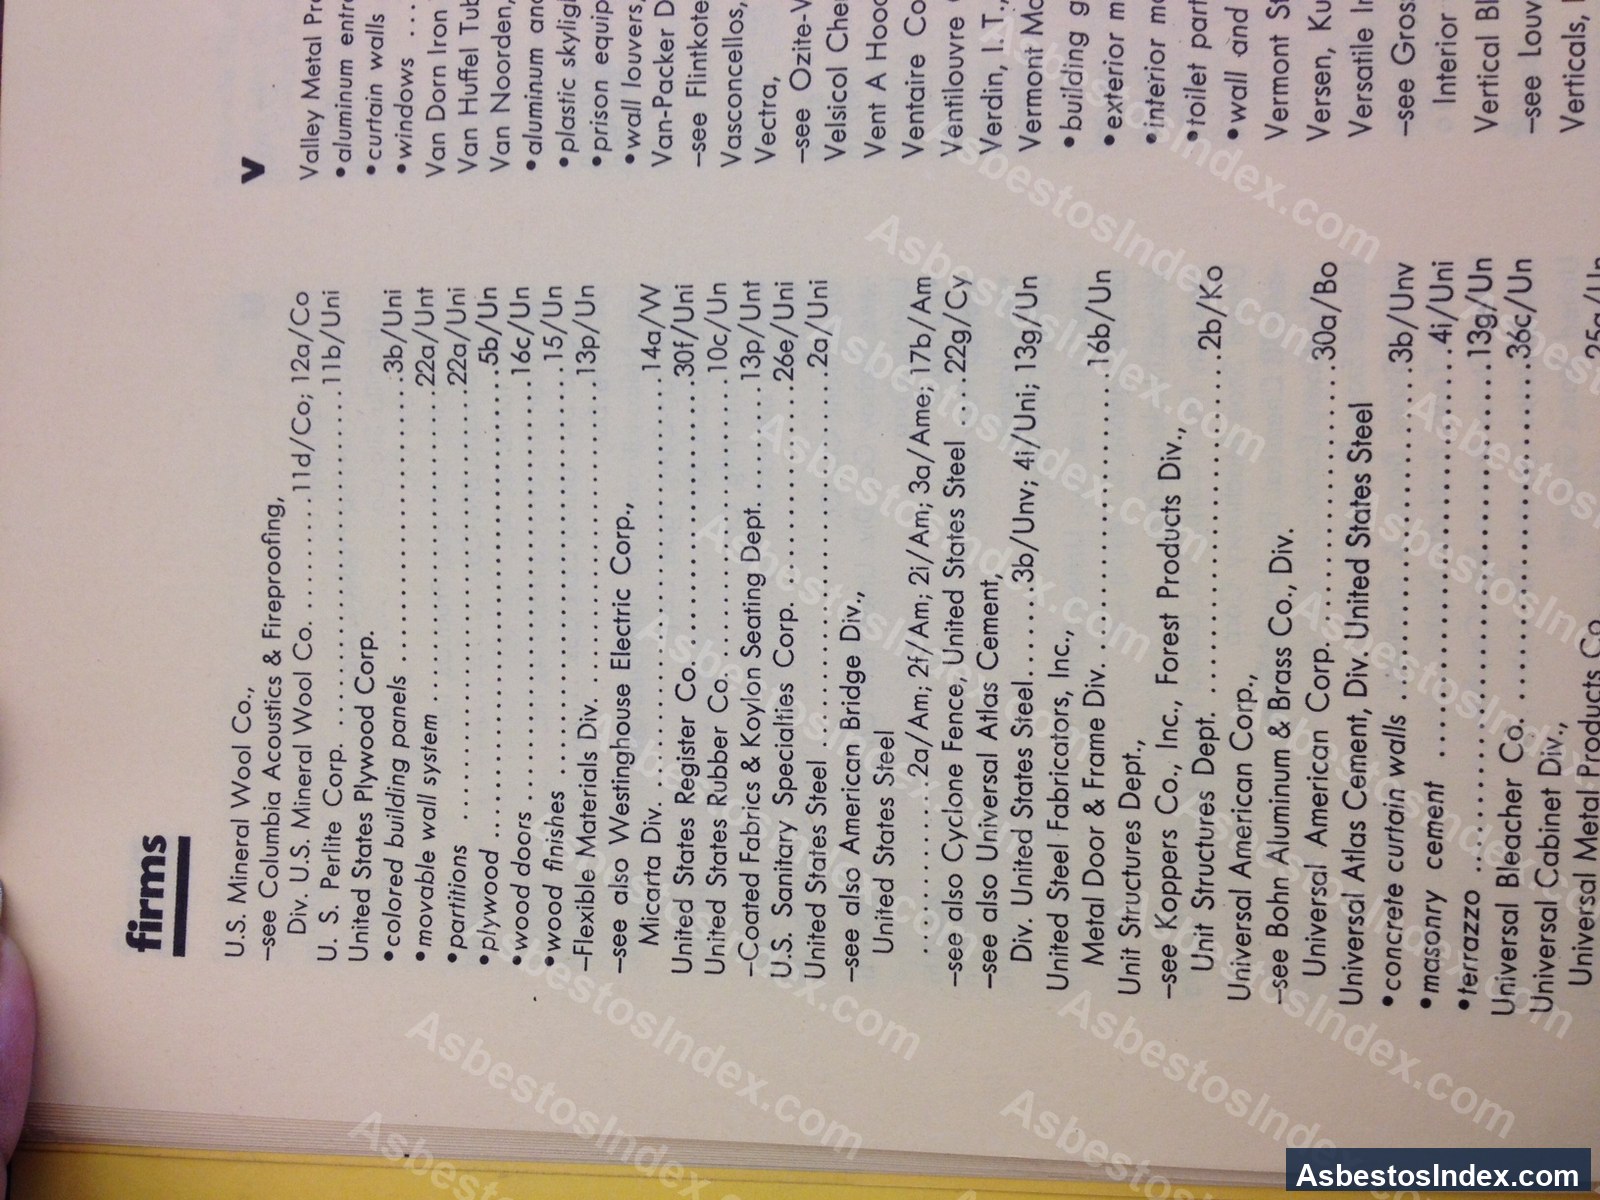 firms
U.S. Mineral Wool Co.,
–see Columbia Acoustics & Fireproofing,
Div. U.S. Mineral Wool Co. .........11d/Co; 12a/Co
U. S. Perlite Corp. ..............................11b/Uni
United States Plywood Corp.
•colored building panels .........................3b/Uni
•movable wall system ...........................22a/Unt
•partitions ....................................22a/Uni
•plywood .......................................5b/Un
•wood doors ...................................16c/Un
•wood finishes .................................15/Un
–Flexible Materials Div. ........................13p/Un
–see also Westinghouse Electric Corp.,
Micarta Div. ...................................14a/W
United States Register Co. ......................30f/Uni
United States Rubber Co. .......................10c/Un
–Coated Fabrics & Koylon Seating Dept. .......13p/Unt
U.S. Sanitary Specialties Corp. ................26e/Uni
United States Steel .............................2a/Uni
–see also American Bridge Div.,
United States Steel
..............2a/Am; 2f/Am; 2i/Am; 3a/Ame; 17b/Am
–see also Cyclone Fence, United States Steel ....22g/Cy
–see also Universal Atlas Cement,
Div. United States Steel......3b/Unv; 4i/Uni; 13g/Un
United Steel Fabricators, Inc.,
Metal Door & Frame Div. ......................16b/Un
Unit Structures Dept.,
–see Koppers Co., Inc., Forest Products Div.,
Unit Structures Dept. ..........................2b/Ko
Universal American Corp.,
–see Bohn Aluminum & Brass Co., Div.
Universal American Corp......................30a/Bo
Universal Atlas Cement, Div. United States Steel
•concrete curtain walls ........................3b/Unv
•masonry cement ..............................4i/Uni
•terrazzo ....................................13g/Un
Universal Bleacher Co. ........................36c/Un
Universal Cabinet Div.,
Universal Metal Products Co.
V
Valley Metal
•aluminum
•curtain walls
•windows ...
Van Dorn Iron
Van Huffel
Van Noorden,
•aluminum and
•plastic
•prison
•wall louvers,
Van-Packer
–see
Vasconcellos,
Vectra,
–see
Velsicol
Vent A Hood
Ventaire
Ventilouvre
Verdin, I.T.,
Vermont
•building
•exterior
•interior
•toilet
•wall and
Vermont
Versen,
Versatile
–see
Interior
Vertical
–see
Verticals,
AsbestosIndex.com